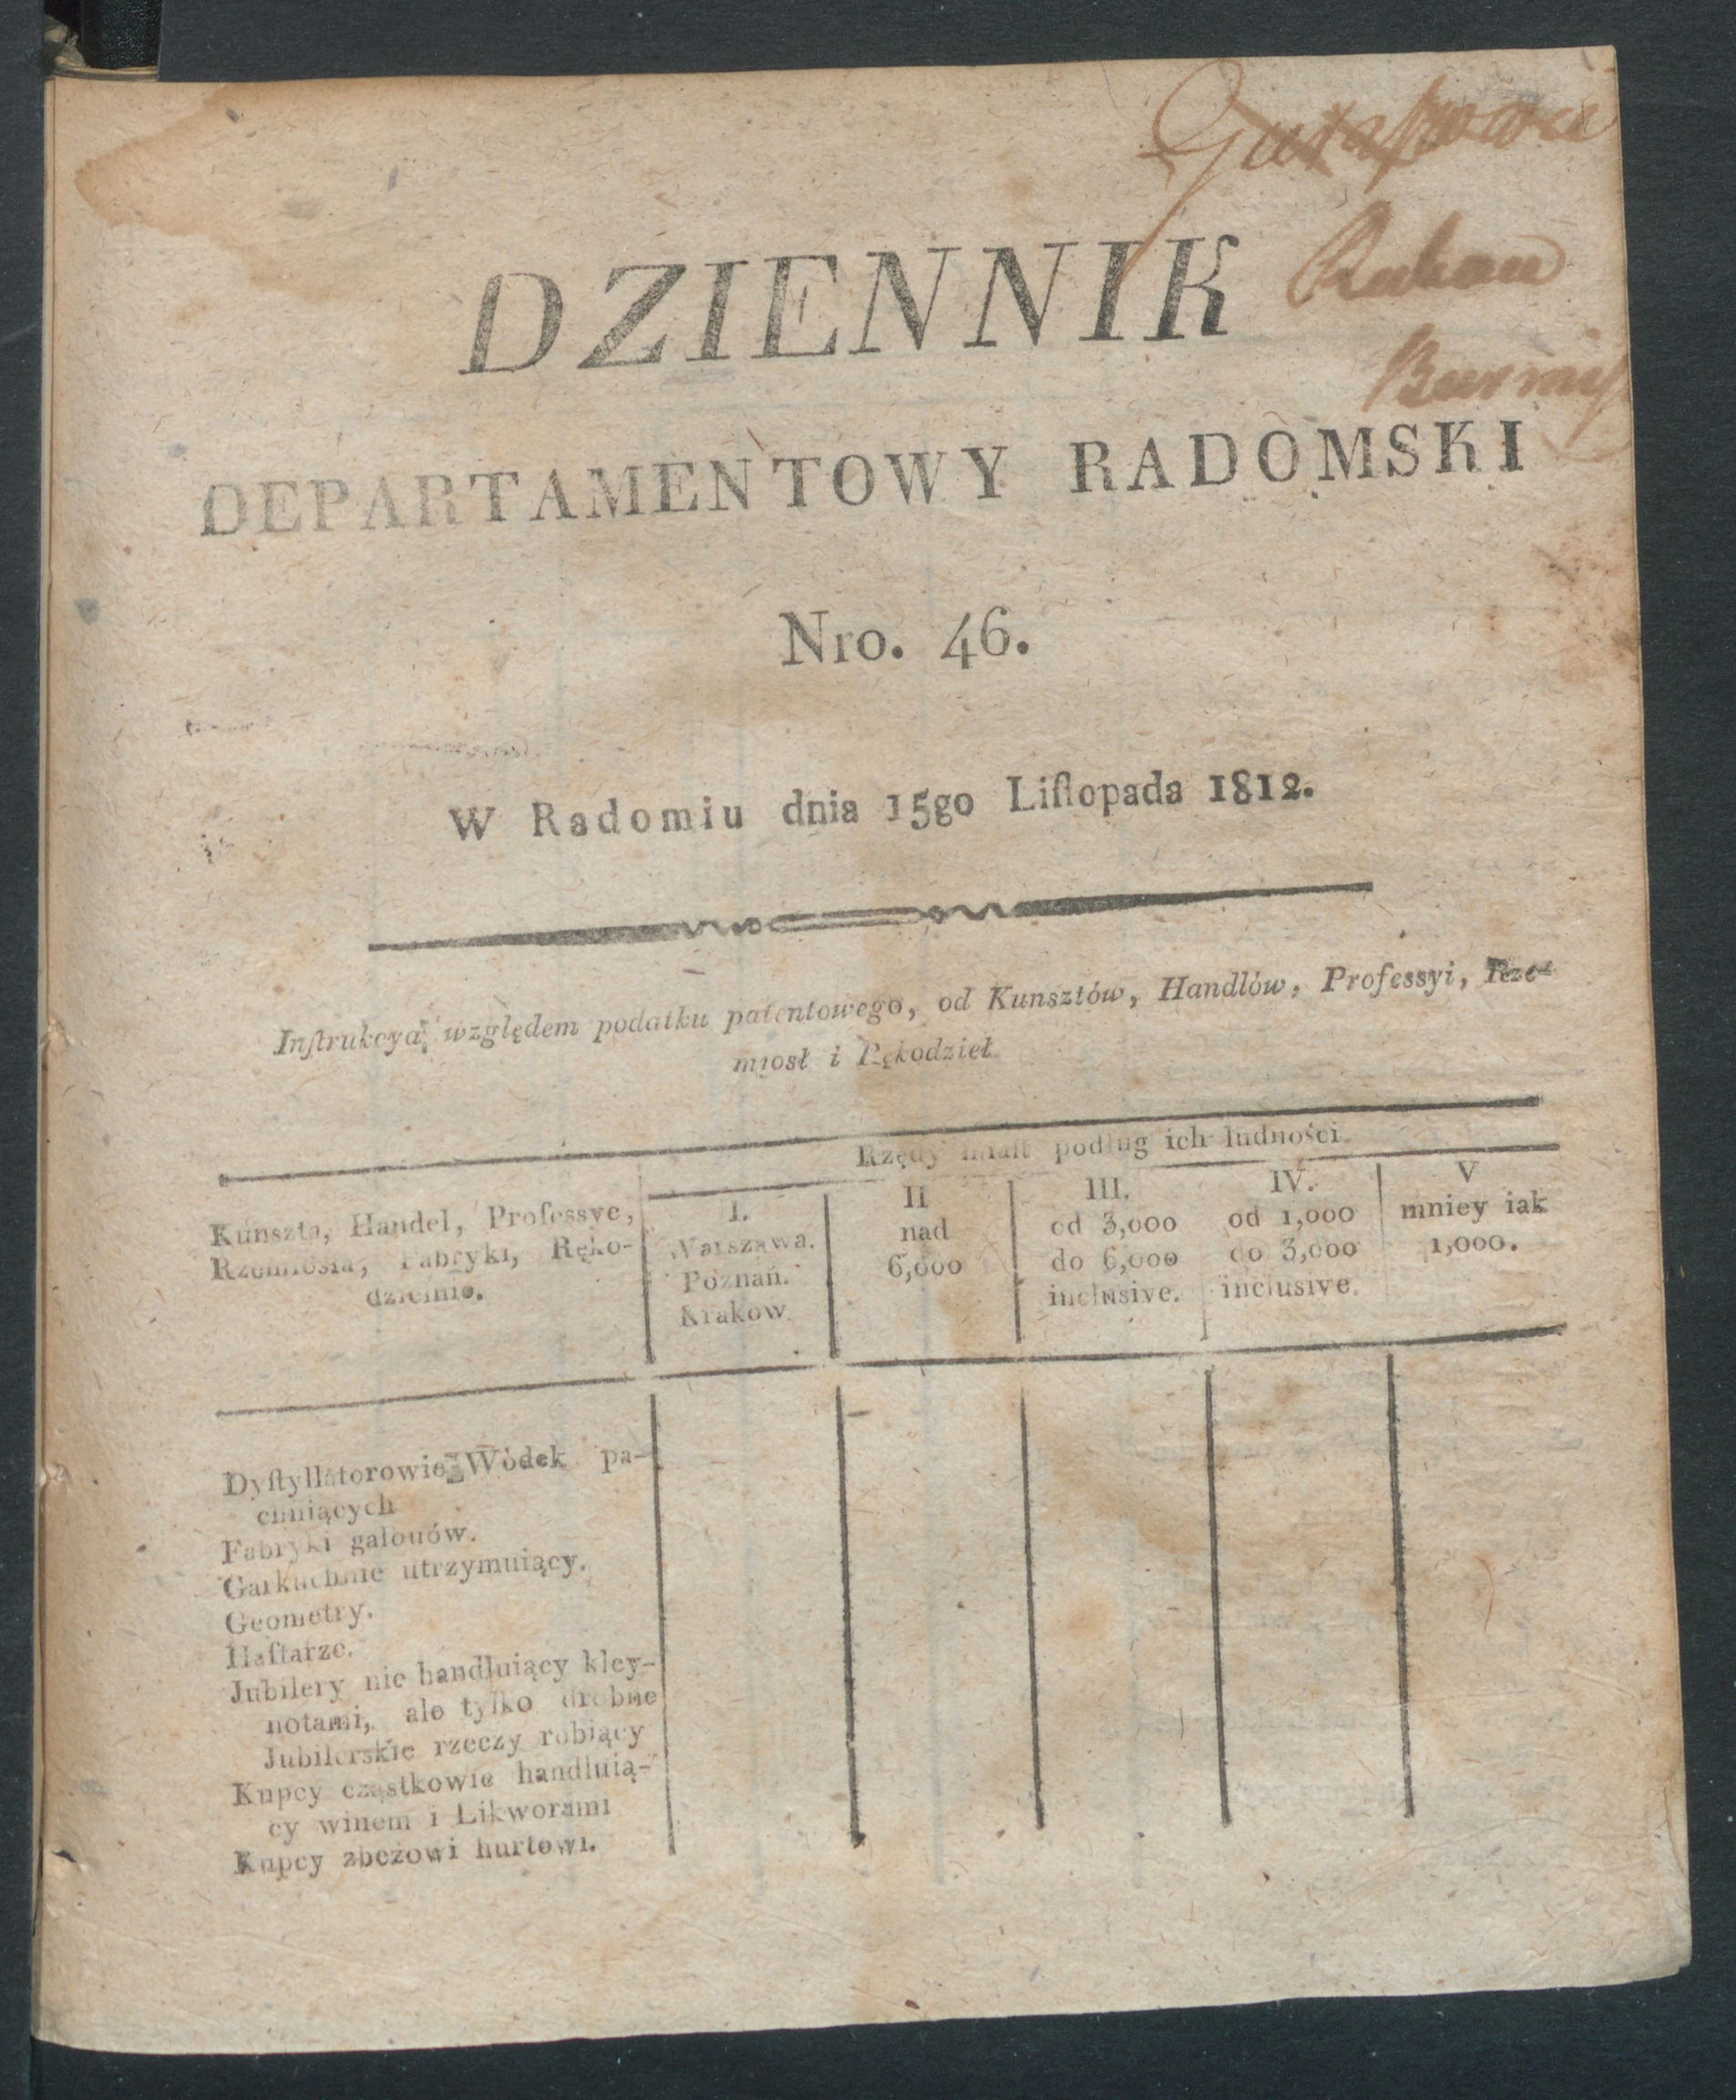 DZIENNIK
DEPARTAMENTOWY RADOMSKI
Nro. 46.
W Radomiu dnia 15go Liſtopada 1812.
Inſtrukcya względem podatku patentowego, od Kunsztów, Handlów, Professyi, Rze-
miosł i Rękodzieł
Rzędy miaſt podług ich ludności.
Kunszta, Handel, Professye,
Rzemiosła, Fabryki, Ręko-
dzielnie.
I.
Warszawa.
Poznań.
Krakow.
II
nad
6,000
III.
od 3,000
do 6,000
inclusive.
IV.
od 1,000
do 3,000
inclusive.
V
mniey iak
1,000.
Dyſtyllatorowie Wódek pa-
chniących
Fabryki galonów.
Garkuchnie utrzymuiący.
Geometry.
Haftarze.
Jubilery nie handluiący kley-
notami, ale tylko drobne
Jubilerskie rzeczy robiący
Kupcy cząstkowie handluią-
cy winem i Likworami
Kupcy zbożowi hurtowi.